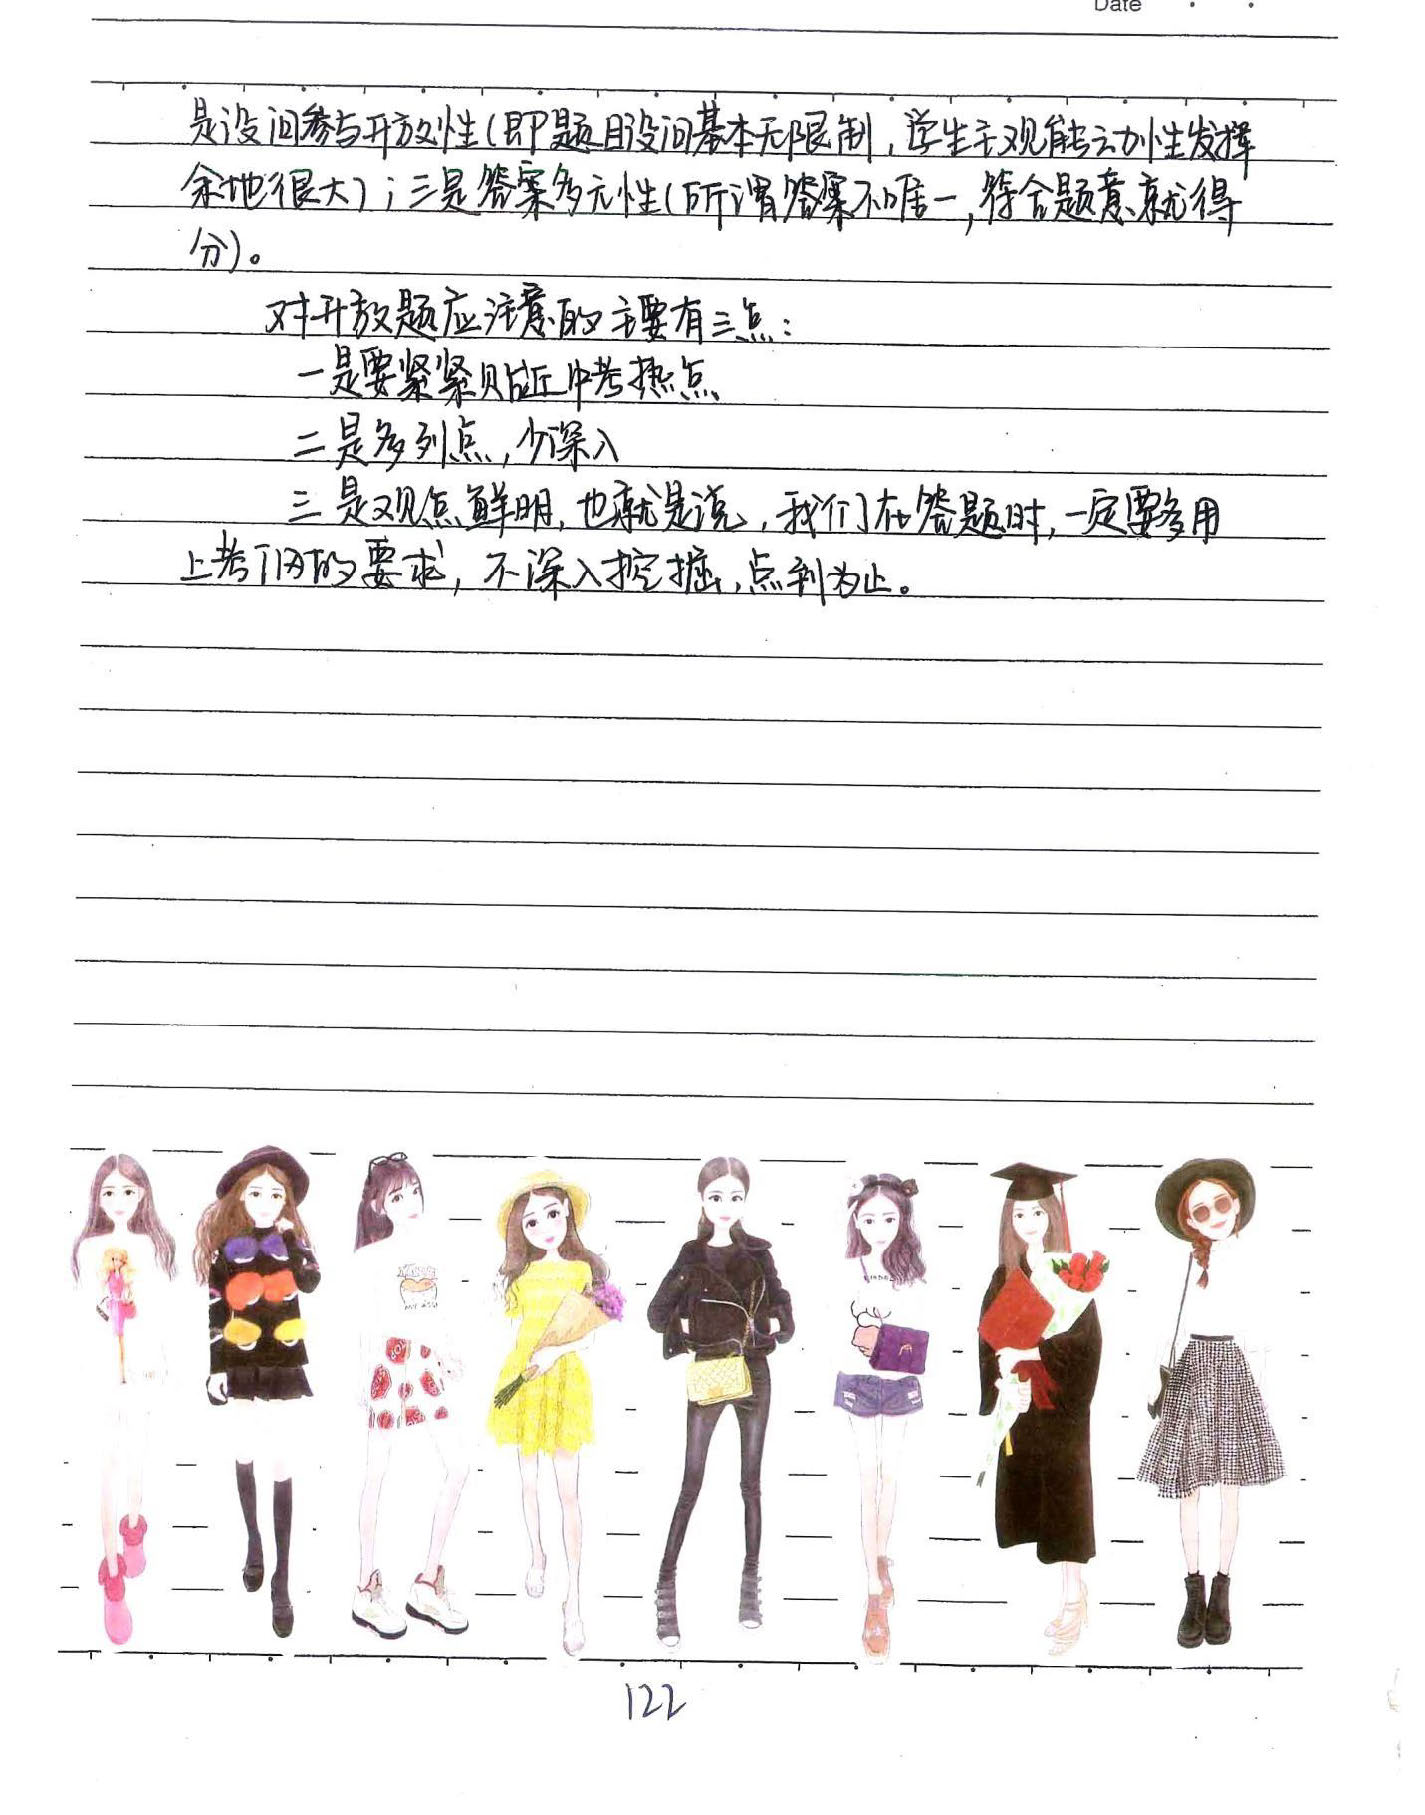 Date
是设问参与开放性(即题目设问基本无限制,学生主观能动性发挥
余地很大);三是答案多元性(所谓答案不唯一,符合题意就得
分)。
对开放题应注意的主要有三点:
一是要紧紧贴近中考热点
二是多列点,少深入
三是观点鲜明,也就是说,我们在答题时,一定要多用
上考纲的要求,不深入挖掘,点到为止。
122